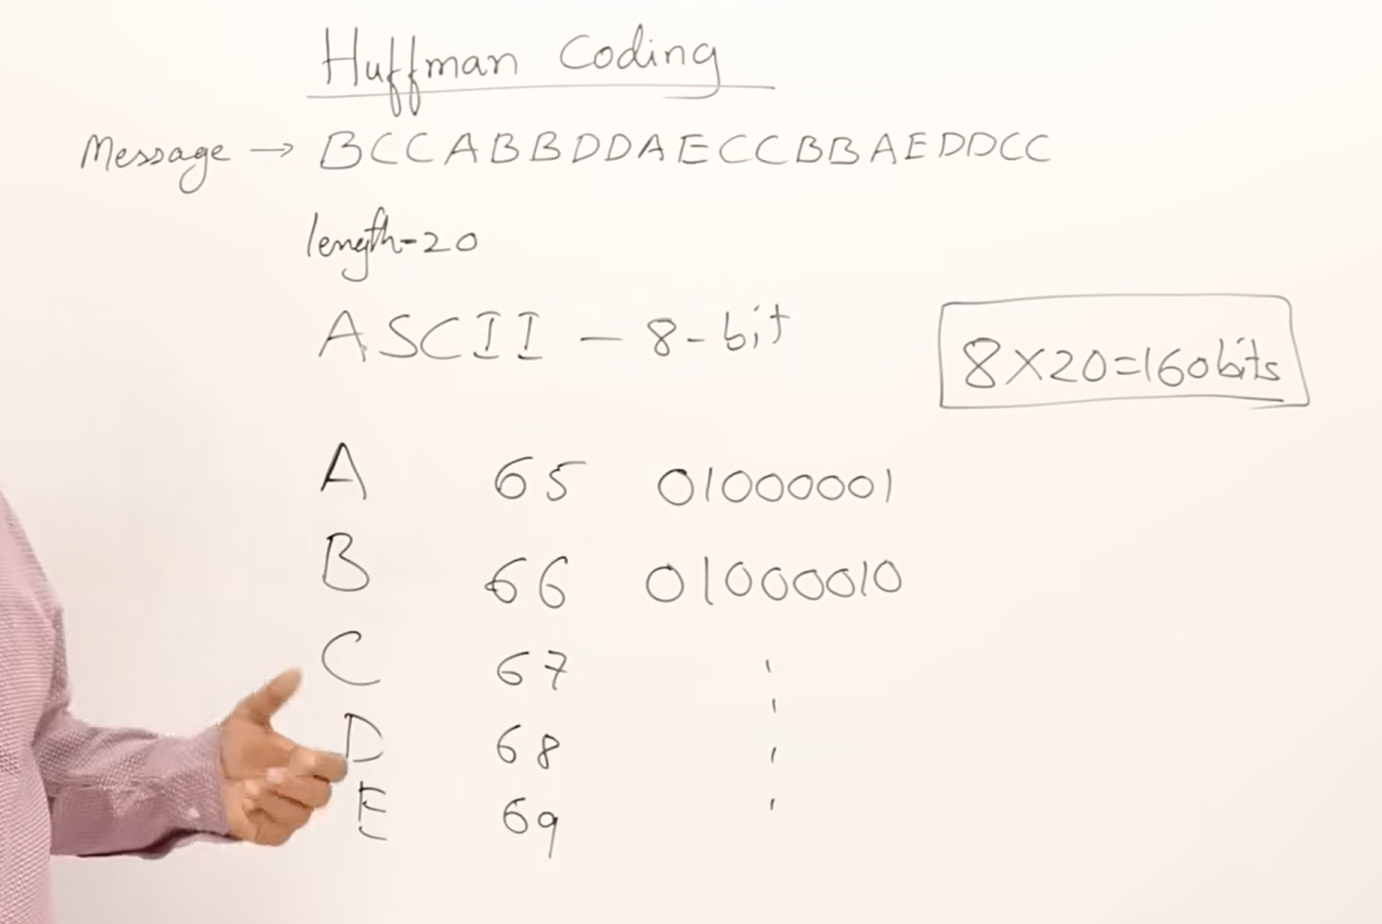 Huffman Coding
Message → BCCABBDDAECCBBAEDDCC
length-20
ASCII - 8-bit
8×20=160bits
A 65 01000001
B 66 01000010
C 67
D 68
E 69